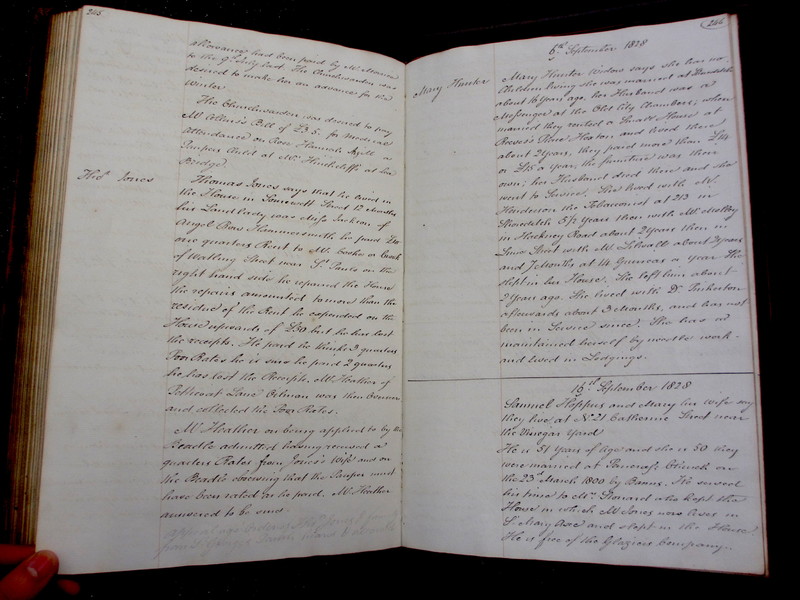 265
allowance had been paid by Mr.
to the 9th July last. The Churchwarden was
desired to make her an advance for the
Winter
The Churchwarden was desired to pay
Mr. Allen's Bill of £3.5. for Medical
Attendance on Rose Hannah a
Paupers Child at Mr. Hinchcliff's at Lea
Bridge.
Thos. Jones
Thomas Jones says that he lived in
the House in Somerset Street 12 Months
his Landlady was Miss Jackson of
Angel Row Hammersmith he paid £10
one quarters Rent to Mr. Cooke or Cook
of Watling Street near St. Pauls on the
right hand side he repaired the House
the repairs amounted to more than the
residue of the Rent he expended on the
House upwards of £30 but he has lost
the receipts. He paid he thinks 3 quarters
Poor Rates he is sure he paid 2 quarters
he has lost the Receipts. Mr. Heather of
Petticoat Lane Oilman was then Overseer
and collected the Poor Rates.
Mr. Heather on being applied to by the
Beadle admitted having received a
quarters Rates from Jones's Wife and on
the Beadle observing that the Pauper must
have been rated as he paid. Mr. Heather
answered to be sure.
266
6th September 1828
Mary Hunter
Mary Hunter Widow says she has no
Children living she was married at Shoreditch
about 16 Years ago. her Husband was a
Messenger at the Old City Chambers; when
married they rented a Small House at
Place Hoxton and lived there
about 2 Years, they paid more than £14
or £15 a year, the furniture was their
own; her Husband died there and she
went to Service. She lived with Mr.
Henderson the Tobacconist at 213 in
Shoreditch 5½ Years then with Mr.
in Hackney Road about 2 Years then in
Street with Mr. about 2 Years
and 7 Months at 14 Guineas a Year She
slept in his House. She left him about
2 Years ago. She lived with Dr. Pinkerton
afterwards about 3 Months, and has not
been in Service since. She has
maintained herself by needle work
and lived in Lodgings.
16th September 1828
Samuel Hoppus and Mary his Wife say
they live at No. 21 Catherine Street near
the Vinegar Yard
He is 51 Years of Age and she is 50 they
were married at Pancras Church on
the 23d March 1800 by Banns. He served
his time to Mr. who kept the
House in which Mr. Jones now lives in
St. Mary Axe and slept in the House
He is free of the Glaziers Company.